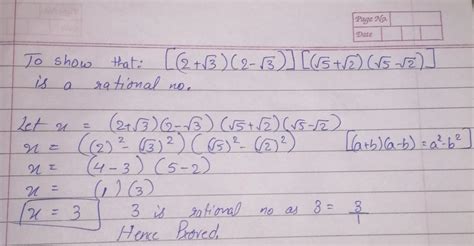 Page No.
Date
To show that: [(2+√3)(2-√3)][(√5+√2)(√5-√2)]
is a rational no.
Let x = (2+√3)(2-√3)(√5+√2)(√5-√2)
x = ((2)²-(√3)²)((√5)²-(√2)²) [(a+b)(a-b)=a²-b²]
x = (4-3)(5-2)
x = (1)(3)
x = 3 3 is rational no as 3 = 3/1
Hence Proved.